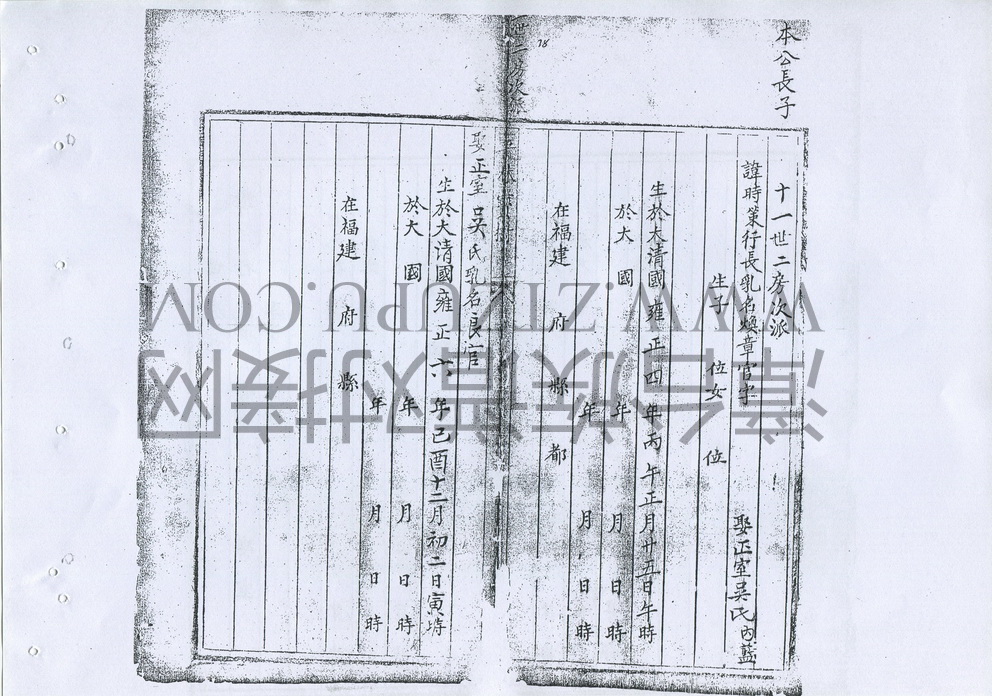 本公長子
十一世二房次派
諱時策行長乳名煥章官字 娶正室吳氏內藍
生子 位女 位
生於大清國雍正四年丙午正月廿五日午時
於大 國 年 月 日 時
年 月 日 時
在福建 府 縣 都
78
娶正室吳氏乳名良官
生於大清國雍正六年己酉十二月初二日寅時
於大 國 年 月 日 時
年 月 日 時
在福建 府 縣
WWW.ZTZUPU.COM
漳台族谱对接网